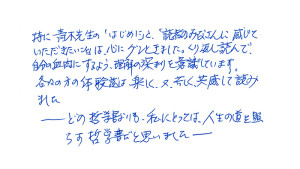 特に青木先生の「はじめに」と、「読者のみなさんに感じて
いただきたい」は、心にグンときました。くり返し読んで
自分の血肉にするよう、理解の深まりを意識しています。
各々の方の体験談は楽しく、又、苦しく、共感して読み
ました
――どの哲学書よりも、私にとっては、人生の道を照
らす哲学書だと思いました――